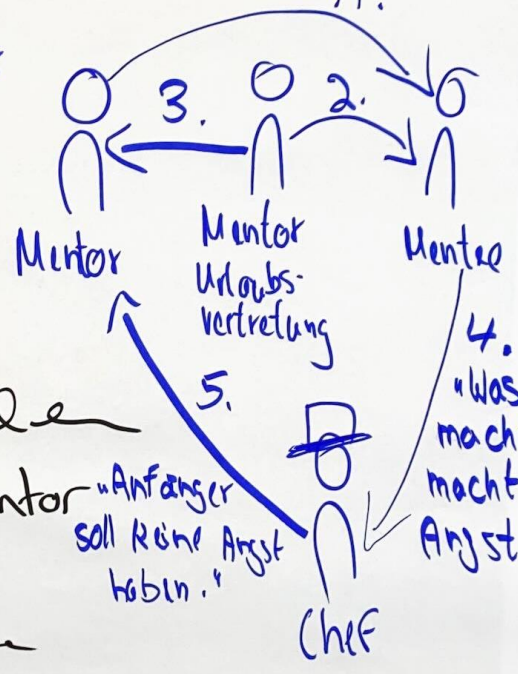 3.
2.
Mentor
Mentor
Urlaubs-
vertretung
Mentee
4.
"Was
mach
macht
Angst
5.
ntor
"Anfänger
soll keine Angst
haben."
Chef